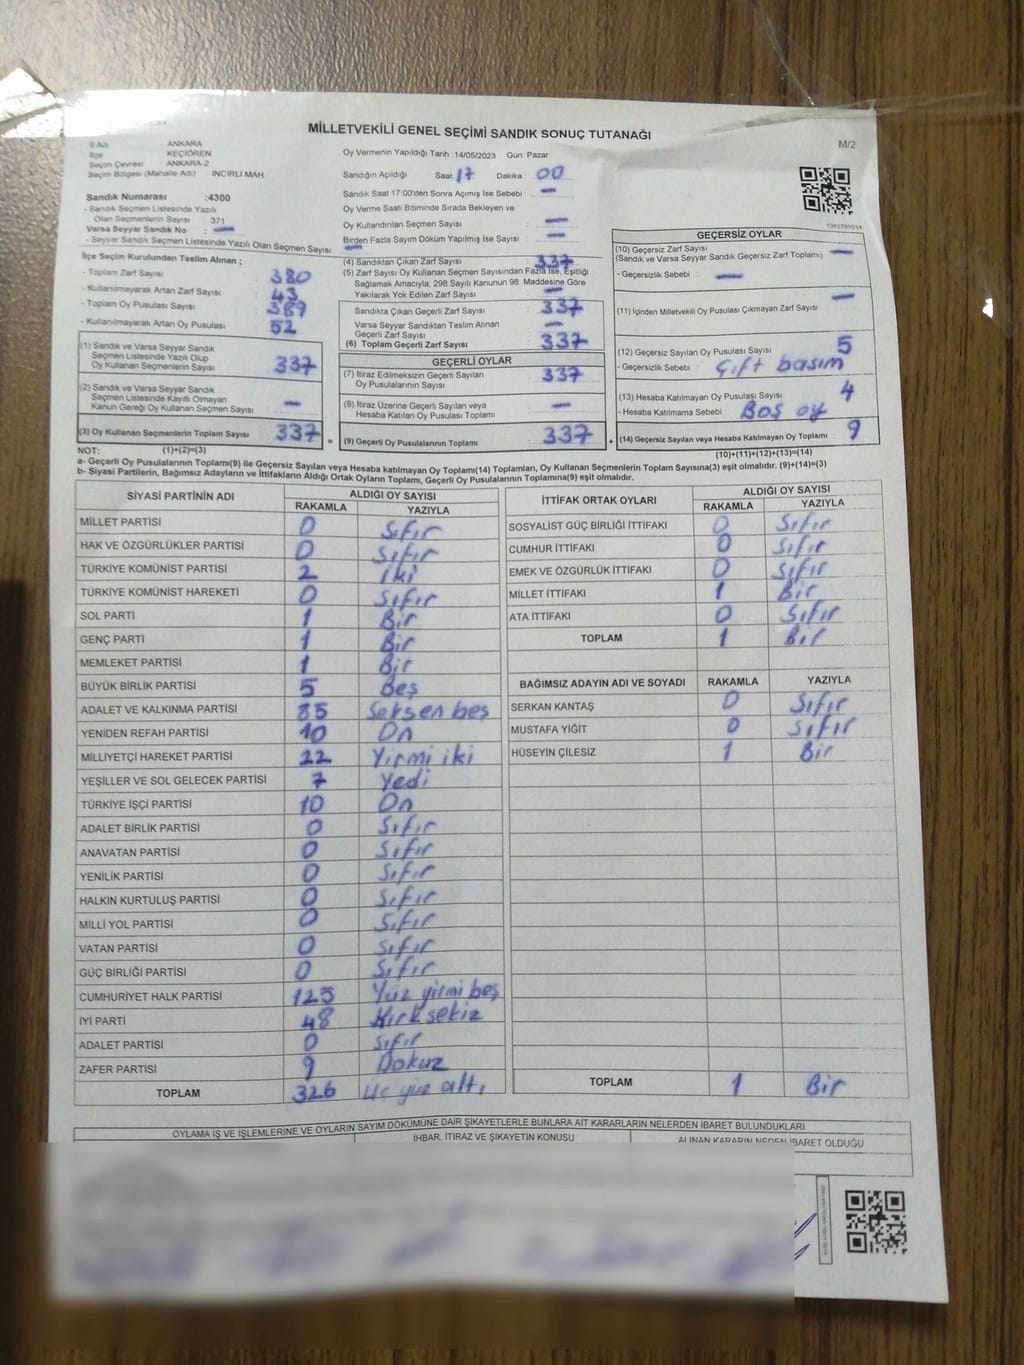 MİLLETVEKİLİ GENEL SEÇİMİ SANDIK SONUÇ TUTANAĞI
M/2
İl Adı ANKARA
İlçe KEÇİÖREN
Seçim Çevresi ANKARA-2
Seçim Bölgesi (Mahalle Adı) İNCİRLİ MAH
Sandık Numarası :4300
- Sandık Seçmen Listesinde Yazılı
Olan Seçmenlerin Sayısı 371
Varsa Seyyar Sandık No : —
- Seyyar Sandık Seçmen Listesinde Yazılı Olan Seçmen Sayısı —
İlçe Seçim Kurulundan Teslim Alınan ;
- Toplam Zarf Sayısı 380
- Kullanılmayarak Artan Zarf Sayısı 43
- Toplam Oy Pusulası Sayısı 389
- Kullanılmayarak Artan Oy Pusulası 52
(1) Sandık ve Varsa Seyyar Sandık
Seçmen Listesinde Yazılı Olup
Oy Kullanan Seçmenlerin Sayısı 337
(2) Sandık ve Varsa Seyyar Sandık
Seçmen Listesinde Kayıtlı Olmayan
Kanun Gereği Oy Kullanan Seçmen Sayısı —
(3) Oy Kullanan Seçmenlerin Toplam Sayısı 337 =
Oy Vermenin Yapıldığı Tarih 14/05/2023 Gün: Pazar
Sandığın Açıldığı Saat 17 Dakika 00
Sandık Saat 17:00'den Sonra Açımış İse Sebebi : —
Oy Verme Saati Bitiminde Sırada Bekleyen ve
Oy Kullandırılan Seçmen Sayısı : —
Birden Fazla Sayım Döküm Yapılmış İse Sayısı : —
(4) Sandıktan Çıkan Zarf Sayısı 337
(5) Zarf Sayısı Oy Kullanan Seçmen Sayısından Fazla İse, Eşitliği
Sağlamak Amacıyla; 298 Sayılı Kanunun 98. Maddesine Göre
Yakılarak Yok Edilen Zarf Sayısı —
Sandıkta Çıkan Geçerli Zarf Sayısı 337
Varsa Seyyar Sandıktan Teslim Alınan
Geçerli Zarf Sayısı —
(6) Toplam Geçerli Zarf Sayısı 337
GEÇERLİ OYLAR
(7) İtiraz Edilmeksizin Geçerli Sayılan
Oy Pusulalarının Sayısı 337
(8) İtiraz Üzerine Geçerli Sayılan veya
Hesaba Katılan Oy Pusulası Toplamı —
(9) Geçerli Oy Pusulalarının Toplamı 337 +
GEÇERSİZ OYLAR
(10) Geçersiz Zarf Sayısı
(Sandık ve Varsa Seyyar Sandık Geçersiz Zarf Toplamı) —
- Geçersizlik Sebebi : —
(11) İçinden Milletvekili Oy Pusulası Çıkmayan Zarf Sayısı —
(12) Geçersiz Sayılan Oy Pusulası Sayısı 5
- Geçersizlik Sebebi : Çift basım
(13) Hesaba Katılmayan Oy Pusulası Sayısı 4
- Hesaba Katılmama Sebebi : Boş oy
(14) Geçersiz Sayılan veya Hesaba Katılmayan Oy Toplamı : 9
NOT: (1)+(2)=(3) (10)+(11)+(12)+(13)=(14)
a- Geçerli Oy Pusulalarının Toplamı(9) ile Geçersiz Sayılan veya Hesaba katılmayan Oy Toplamı(14) Toplamları, Oy Kullanan Seçmenlerin Toplam Sayısına(3) eşit olmalıdır. (9)+(14)=(3)
b- Siyasi Partilerin, Bağımsız Adayların ve İttifakların Aldığı Ortak Oyların Toplamı, Geçerli Oy Pusulalarının Toplamına(9) eşit olmalıdır.
SİYASİ PARTİNİN ADI ALDIĞI OY SAYISI
RAKAMLA YAZIYLA
MİLLET PARTİSİ 0 Sıfır
HAK VE ÖZGÜRLÜKLER PARTİSİ 0 Sıfır
TÜRKİYE KOMÜNİST PARTİSİ 2 iki
TÜRKİYE KOMÜNİST HAREKETİ 0 Sıfır
SOL PARTİ 1 Bir
GENÇ PARTİ 1 Bir
MEMLEKET PARTİSİ 1 Bir
BÜYÜK BİRLİK PARTİSİ 5 Beş
ADALET VE KALKINMA PARTİSİ 85 Seksen beş
YENİDEN REFAH PARTİSİ 10 On
MİLLİYETÇİ HAREKET PARTİSİ 22 Yirmi iki
YEŞİLLER VE SOL GELECEK PARTİSİ 7 Yedi
TÜRKİYE İŞÇİ PARTİSİ 10 On
ADALET BİRLİK PARTİSİ 0 Sıfır
ANAVATAN PARTİSİ 0 Sıfır
YENİLİK PARTİSİ 0 Sıfır
HALKIN KURTULUŞ PARTİSİ 0 Sıfır
MİLLİ YOL PARTİSİ 0 Sıfır
VATAN PARTİSİ 0 Sıfır
GÜÇ BİRLİĞİ PARTİSİ 0 Sıfır
CUMHURİYET HALK PARTİSİ 125 Yüz yirmi beş
İYİ PARTİ 48 Kırk sekiz
ADALET PARTİSİ 0 Sıfır
ZAFER PARTİSİ 9 Dokuz
TOPLAM 326 Üç yüz altı
İTTİFAK ORTAK OYLARI ALDIĞI OY SAYISI
RAKAMLA YAZIYLA
SOSYALİST GÜÇ BİRLİĞİ İTTİFAKI 0 Sıfır
CUMHUR İTTİFAKI 0 Sıfır
EMEK VE ÖZGÜRLÜK İTTİFAKI 0 Sıfır
MİLLET İTTİFAKI 1 Bir
ATA İTTİFAKI 0 Sıfır
TOPLAM 1 Bir
BAĞIMSIZ ADAYIN ADI VE SOYADI RAKAMLA YAZIYLA
SERKAN KANTAŞ 0 Sıfır
MUSTAFA YİĞİT 0 Sıfır
HÜSEYİN ÇİLESİZ 1 Bir
TOPLAM 1 Bir
OYLAMA İŞ VE İŞLEMLERİNE VE OYLARIN SAYIM DÖKÜMÜNE DAİR ŞİKAYETLERLE BUNLARA AİT KARARLARIN NELERDEN İBARET BULUNDUKLARI
İHBAR, İTİRAZ VE ŞİKAYETİN KONUSU ALINAN KARARIN NEDEN İBARET OLDUĞU